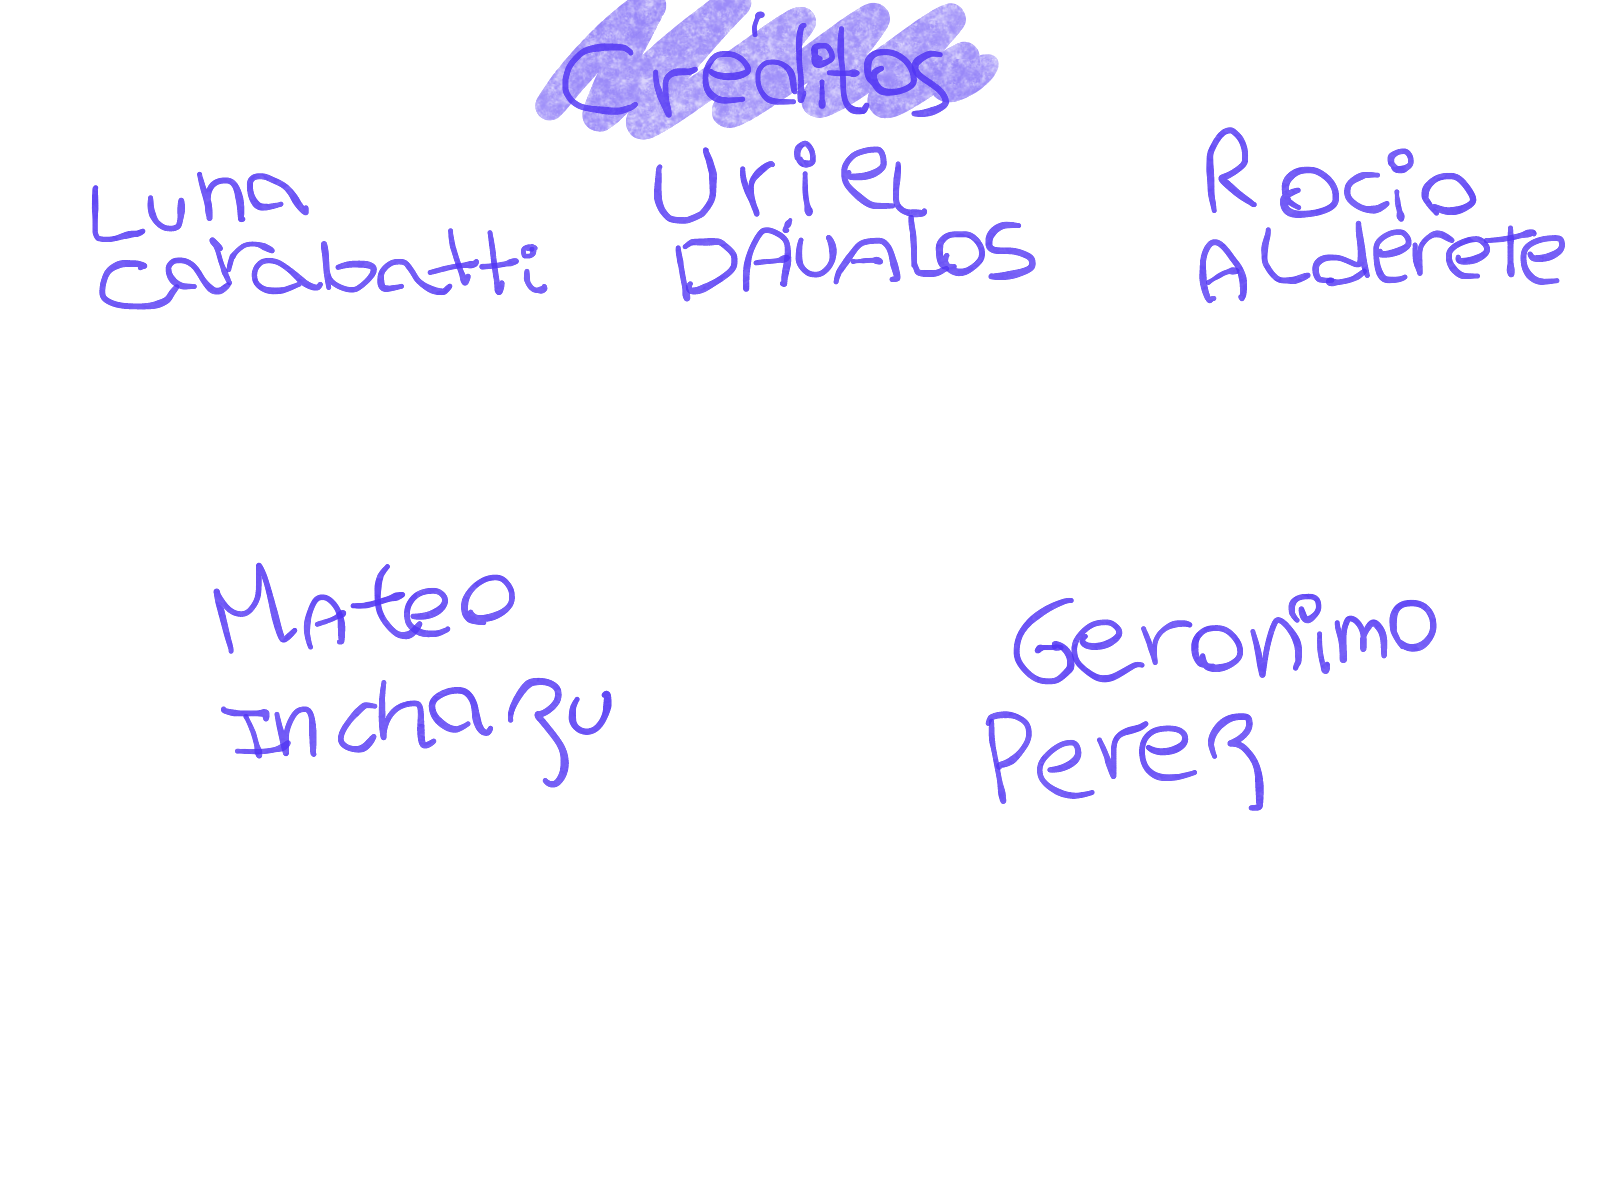 Créditos
Luna
Carabatti
Uriel
DÁVALOS
Rocio
ALderete
Mateo
Inchazu
Geronimo
Perez